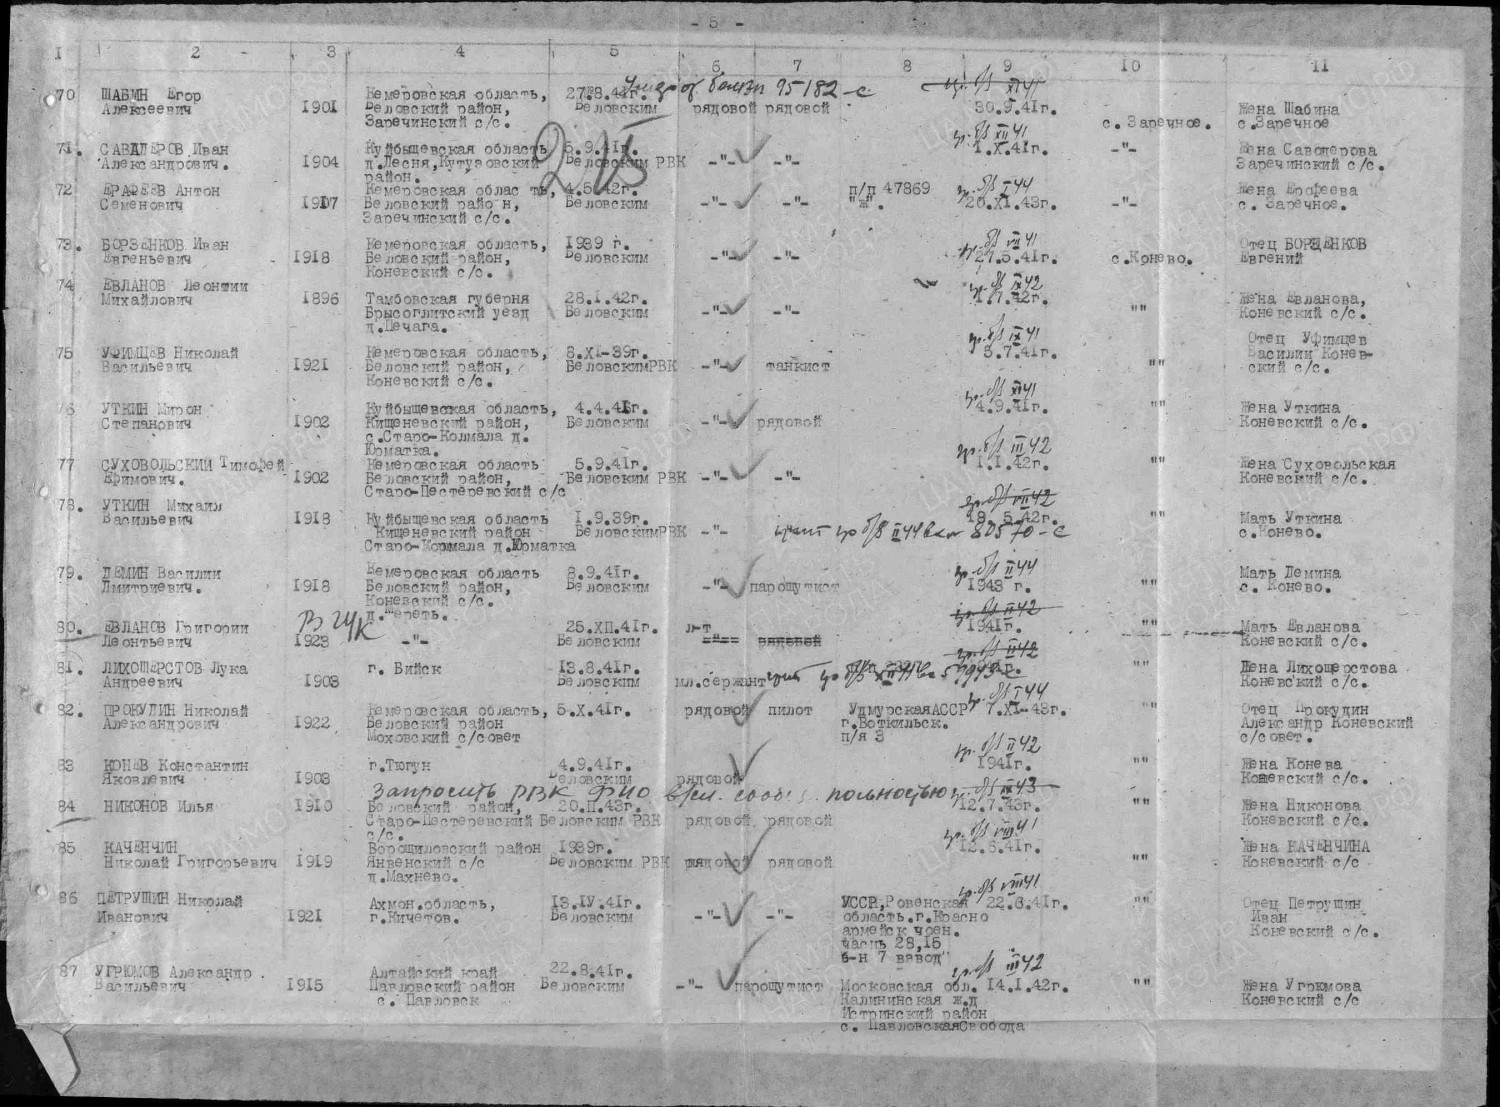 - 5 -
I 2 - 3 4 5 6 7 8 9 10 11
70 ШАБИН Егор Алексеевич 1901 Кемеровская область, Беловский район, Заречинский с/с. 27.8.41г. Беловским рядовой рядовой 30.9.41г. с.Заречное. Жена Шабина с.Заречное
95182-с
215
71. САВДЕРОВ Иван Александрович. 1904 Куйбышевская область д.Лесня,Кутузовский район. 5.9.41г. Беловским РВК -"- 1.X.41г. -"- Жена Саводерова Заречинский с/с.
пр.б/в XII 41
72 ЕРАФЕЕВ Антон Семенович 1917 Кемеровская облас ть, Беловский райо н, Заречинский с/с. 4.5.42г. Беловским -"- -"- п/п 47869 "ж". 20.XI.43г. -"- Жена Ерофеева с. Заречное.
пр.б/в I 44
73. БОРЗЕНКОВ Иван Евгеньевич 1918 Кемеровская область, Беловский район, Коневский с/с. 1939 г. Беловским -"- -"- 27.5.41г. с.Конево. Отец БОРЗЕНКОВ Евгений
пр.б/в VII 41
74 ЕВЛАНОВ Леонтии Михайлович 1896 Тамбовская губерня Брысоглитский уезд д.Печага. 28.I.42г. Беловским -"- -"- 1.7.42г. "" Жена Евланова, Коневский с/с.
пр.б/в IX 42
75 УФИМЦЕВ Николай Васильевич 1921 Кемеровская область, Беловский район, Коневский с/с. 8.XI-39г. БеловскимРВК -"- танкист 3.7.41г. "" Отец Уфимцев Василии Конев-ский с/с.
пр.б/в IX 41
76 УТКИН Мирон Степанович 1902 Куйбышевская область, Кищеневский район, с.Старо-Колмала д. Юрматка. 4.4.41г. Беловским -"- рядовой 4.9.41г. "" Жена Уткина Коневский с/с.
пр.б/в XI 41
77 СУХОВОЛЬСКИЙ Тимофей Ефимович. 1902 Кемеровская область Беловский район, Старо-Пестеревский с/с 5.9.41г. Беловским РВК -"- -"- 1.I.42г. "" Жена Суховольская Коневский с/с.
пр.б/в III 42
78. УТКИН Михаил Васильевич 1918 Куйбыщевская область Кищеневский район Старо-Кормала д.Юрматка I.9.39г. БеловскимРВК -"- 18.5.42г. "" Мать Уткина с.Конево.
пр.б/в VII 42
пр б/в II 44 80570-с
79. ДЕМИН Василии Дмитриевич. 1918 Кемеровская область Беловский район, Коневский с/с. д.Шереть. 8.9.41г. Беловским -"- парощутист 1943 г. "" Мать Демина с. Конево.
пр.б/в II 44
В ГУК
80. ЕВЛАНОВ Григории Леонтьевич 1923 -"- 25.XII.41г. Беловским л-т рядовой 1941г. "" Мать Евланова Коневский с/с.
пр.б/в II 42
81. ЛИХОШЕРСТОВ Лука Андреевич 1903 г. Бийск 13.8.41г. Беловским мл.сержант "" Жена Лихошерстова Коневский с/с.
пр.б/в II 42
82. ПРОКУДИН Николай Александрович 1922 Кемеровская область, Беловский район Моховский с/совет 5.X.41г. рядовой пилот УдмурскаяАССР г.Воткильск. п/я 3 7.XI-43г. "" Отец Прокудин Александр Коневский с/совет.
пр.б/в I 44
83 КОНЕВ Константин Яковлевич 1903 г.Тюгун 4.9.41г. Беловским рядовой 1941г. "" Жена Конева Коневский с/с.
пр.б/в II 42
Запросить РВК ФИО полностью
84 НИКОНОВ Илья 1910 Беловский район, Старо-Пестеревский с/с. 20.II.43г. Беловским РВК рядовой рядовой 12.7.43г. "" Жена Никонова Коневский с/с.
пр.б/в IX 43
85 КАЧЕНЧИН Николай Григорьевич 1919 Ворощиловский район Янвенский с/с д.Махнево. 1939г. Беловским РВК рядовой рядовой 12.6.41г. "" Жена КАЧЕНЧИНА Коневский с/с.
пр.б/в VIII 41
86 ПЕТРУШИН Николай Иванович 1921 Ахмол.область, г.Кичетов. 13.IV.41г. Беловским -"- -"- УССР,Ровенская область.г.Красно армейск чоен. часть 28,15 б-н 7 взвод" 22.6.41г. "" Отец Петрушин Иван Коневский с/с.
пр.б/в VIII 41
87 УГРЮМОВ Александр Васильевич 1915 Алтайский край Павловский район с. Павловск 22.8.41г. Беловским -"- парощутист Московская обл. Калининская ж.д Истринский район с. ПавловскаяСвобода 14.I.42г. "" Жена Угрюмова Коневский с/с
пр.б/в III 42